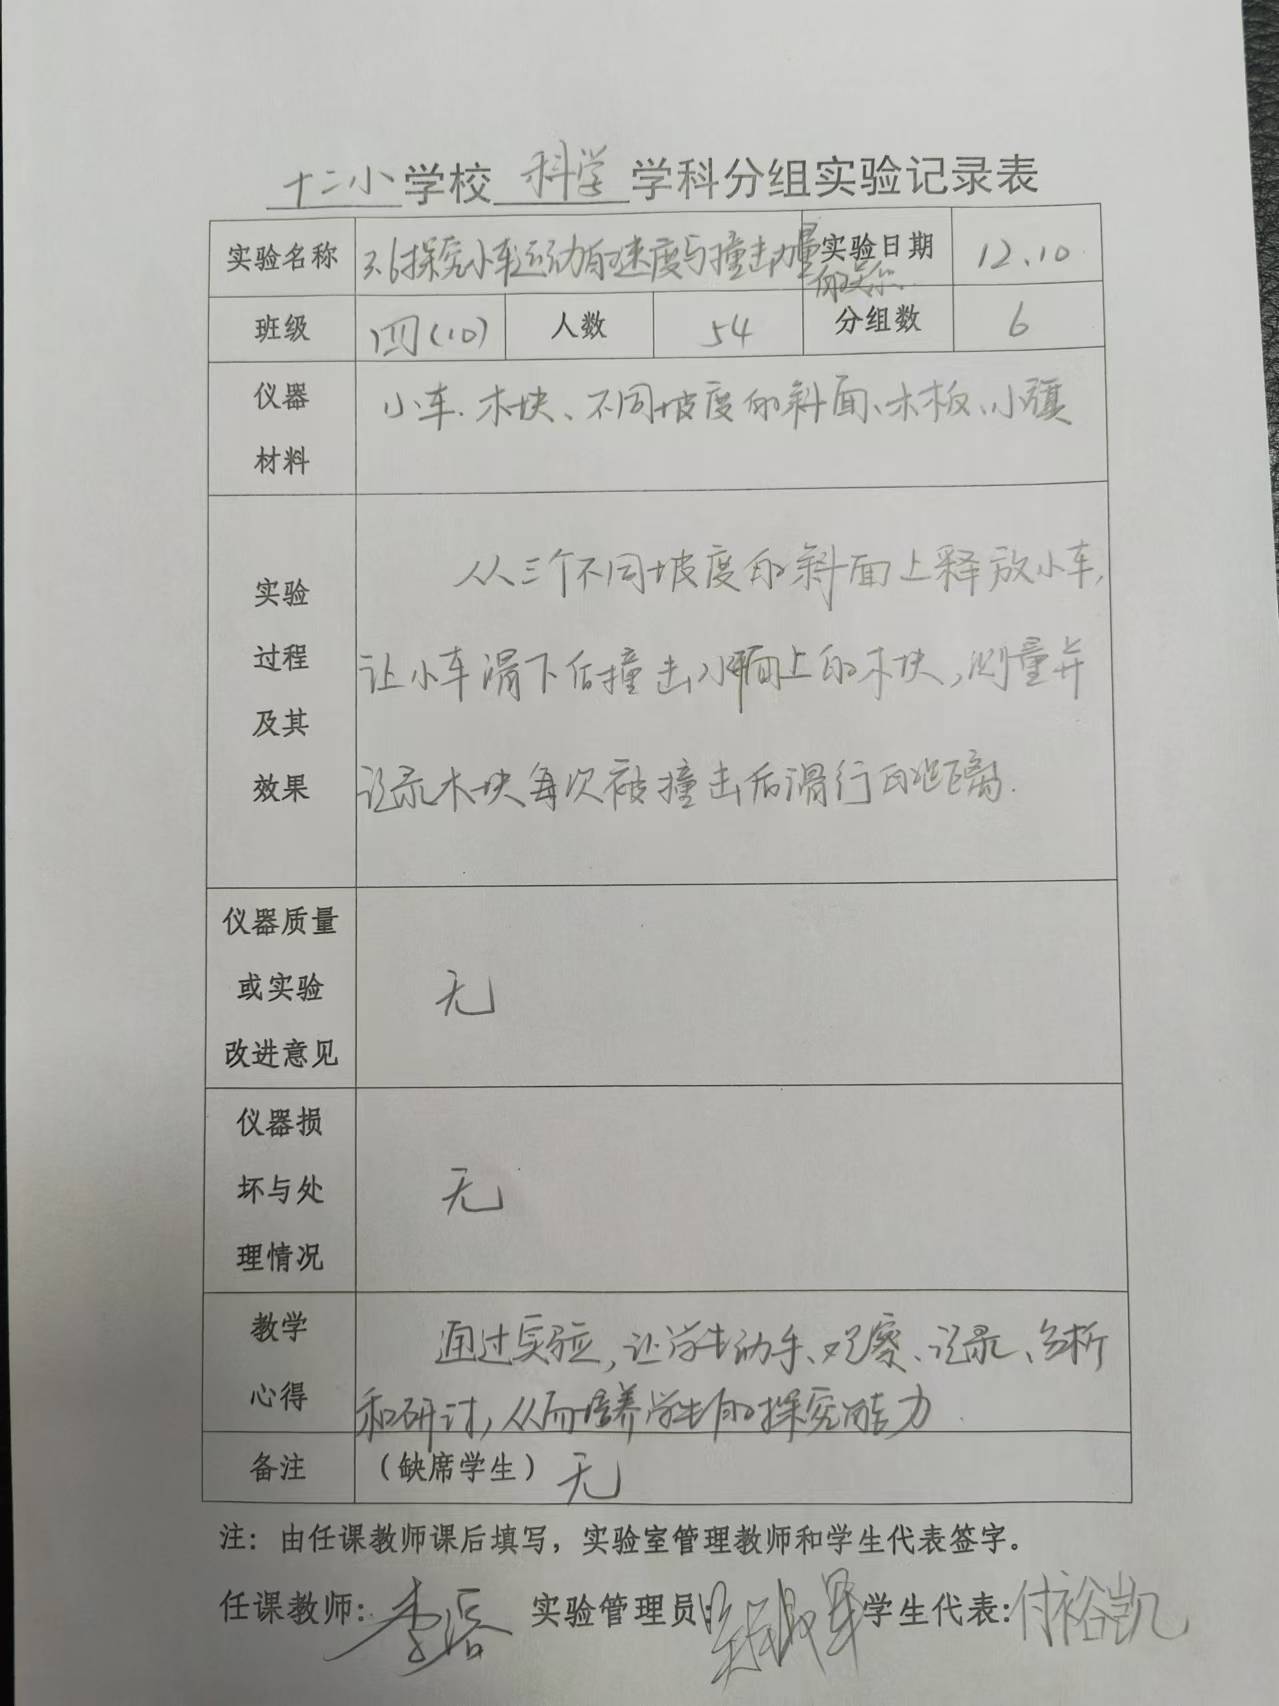 十二小学校 科学 学科分组实验记录表
实验名称 3.6探究小车运动的速度与撞击力量的关系 实验日期 12.10
班级 四(10) 人数 54 分组数 6
仪器
材料
小车、木块、不同坡度的斜面、木板、小旗
实验
过程
及其
效果
从三个不同坡度的斜面上释放小车,
让小车滑下后撞击水平面上的木块,测量并
记录木块每次被撞击后滑行的距离.
仪器质量
或实验
改进意见
无
仪器损
坏与处
理情况
无
教学
心得
通过实验,让学生动手、观察、记录、分析
和研讨,从而培养学生的探究能力.
备注 (缺席学生) 无
注：由任课教师课后填写，实验室管理教师和学生代表签字。
任课教师: 李 实验管理员: 学生代表:付裕凯